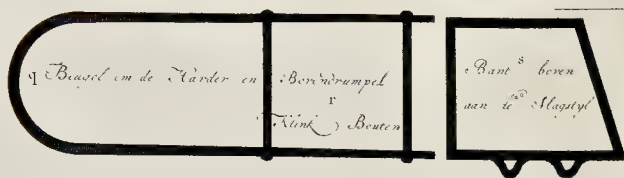 q Beugel om de Harder en Bovendrumpel
r
Klink Bouten
Bant s boven
aan de Slagstyl